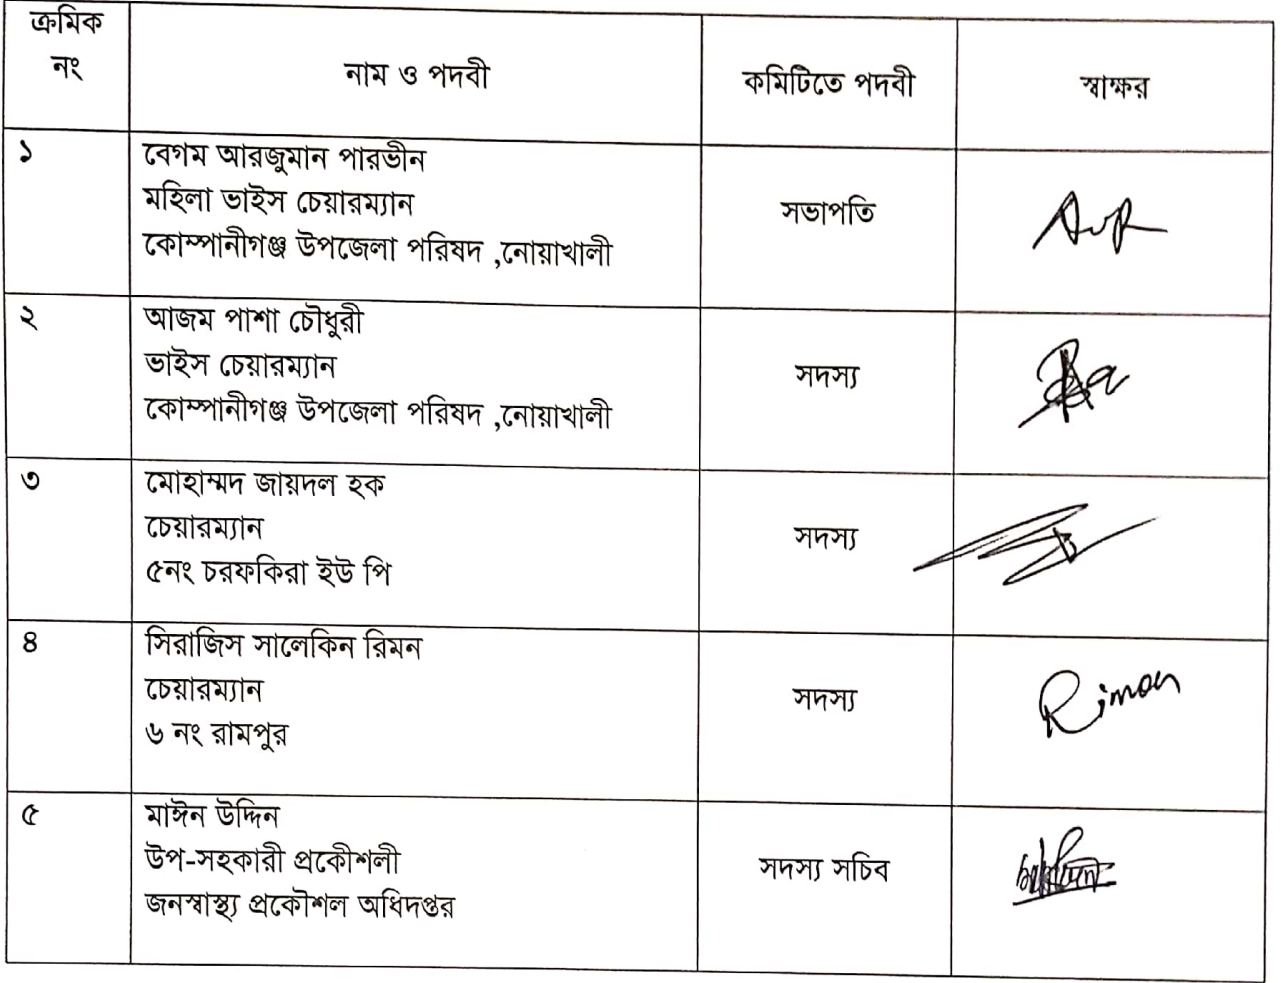 ক্রমিক
নং
নাম ও পদবী
কমিটিতে পদবী
স্বাক্ষর
১
বেগম আরজুমান পারভীন
মহিলা ভাইস চেয়ারম্যান
কোম্পানীগঞ্জ উপজেলা পরিষদ ,নোয়াখালী
সভাপতি
২
আজম পাশা চৌধুরী
ভাইস চেয়ারম্যান
কোম্পানীগঞ্জ উপজেলা পরিষদ ,নোয়াখালী
সদস্য
৩
মোহাম্মদ জায়দল হক
চেয়ারম্যান
৫নং চরফকিরা ইউ পি
সদস্য
৪
সিরাজিস সালেকিন রিমন
চেয়ারম্যান
৬ নং রামপুর
সদস্য
Rimon
৫
মাঈন উদ্দিন
উপ-সহকারী প্রকৌশলী
জনস্বাস্থ্য প্রকৌশল অধিদপ্তর
সদস্য সচিব